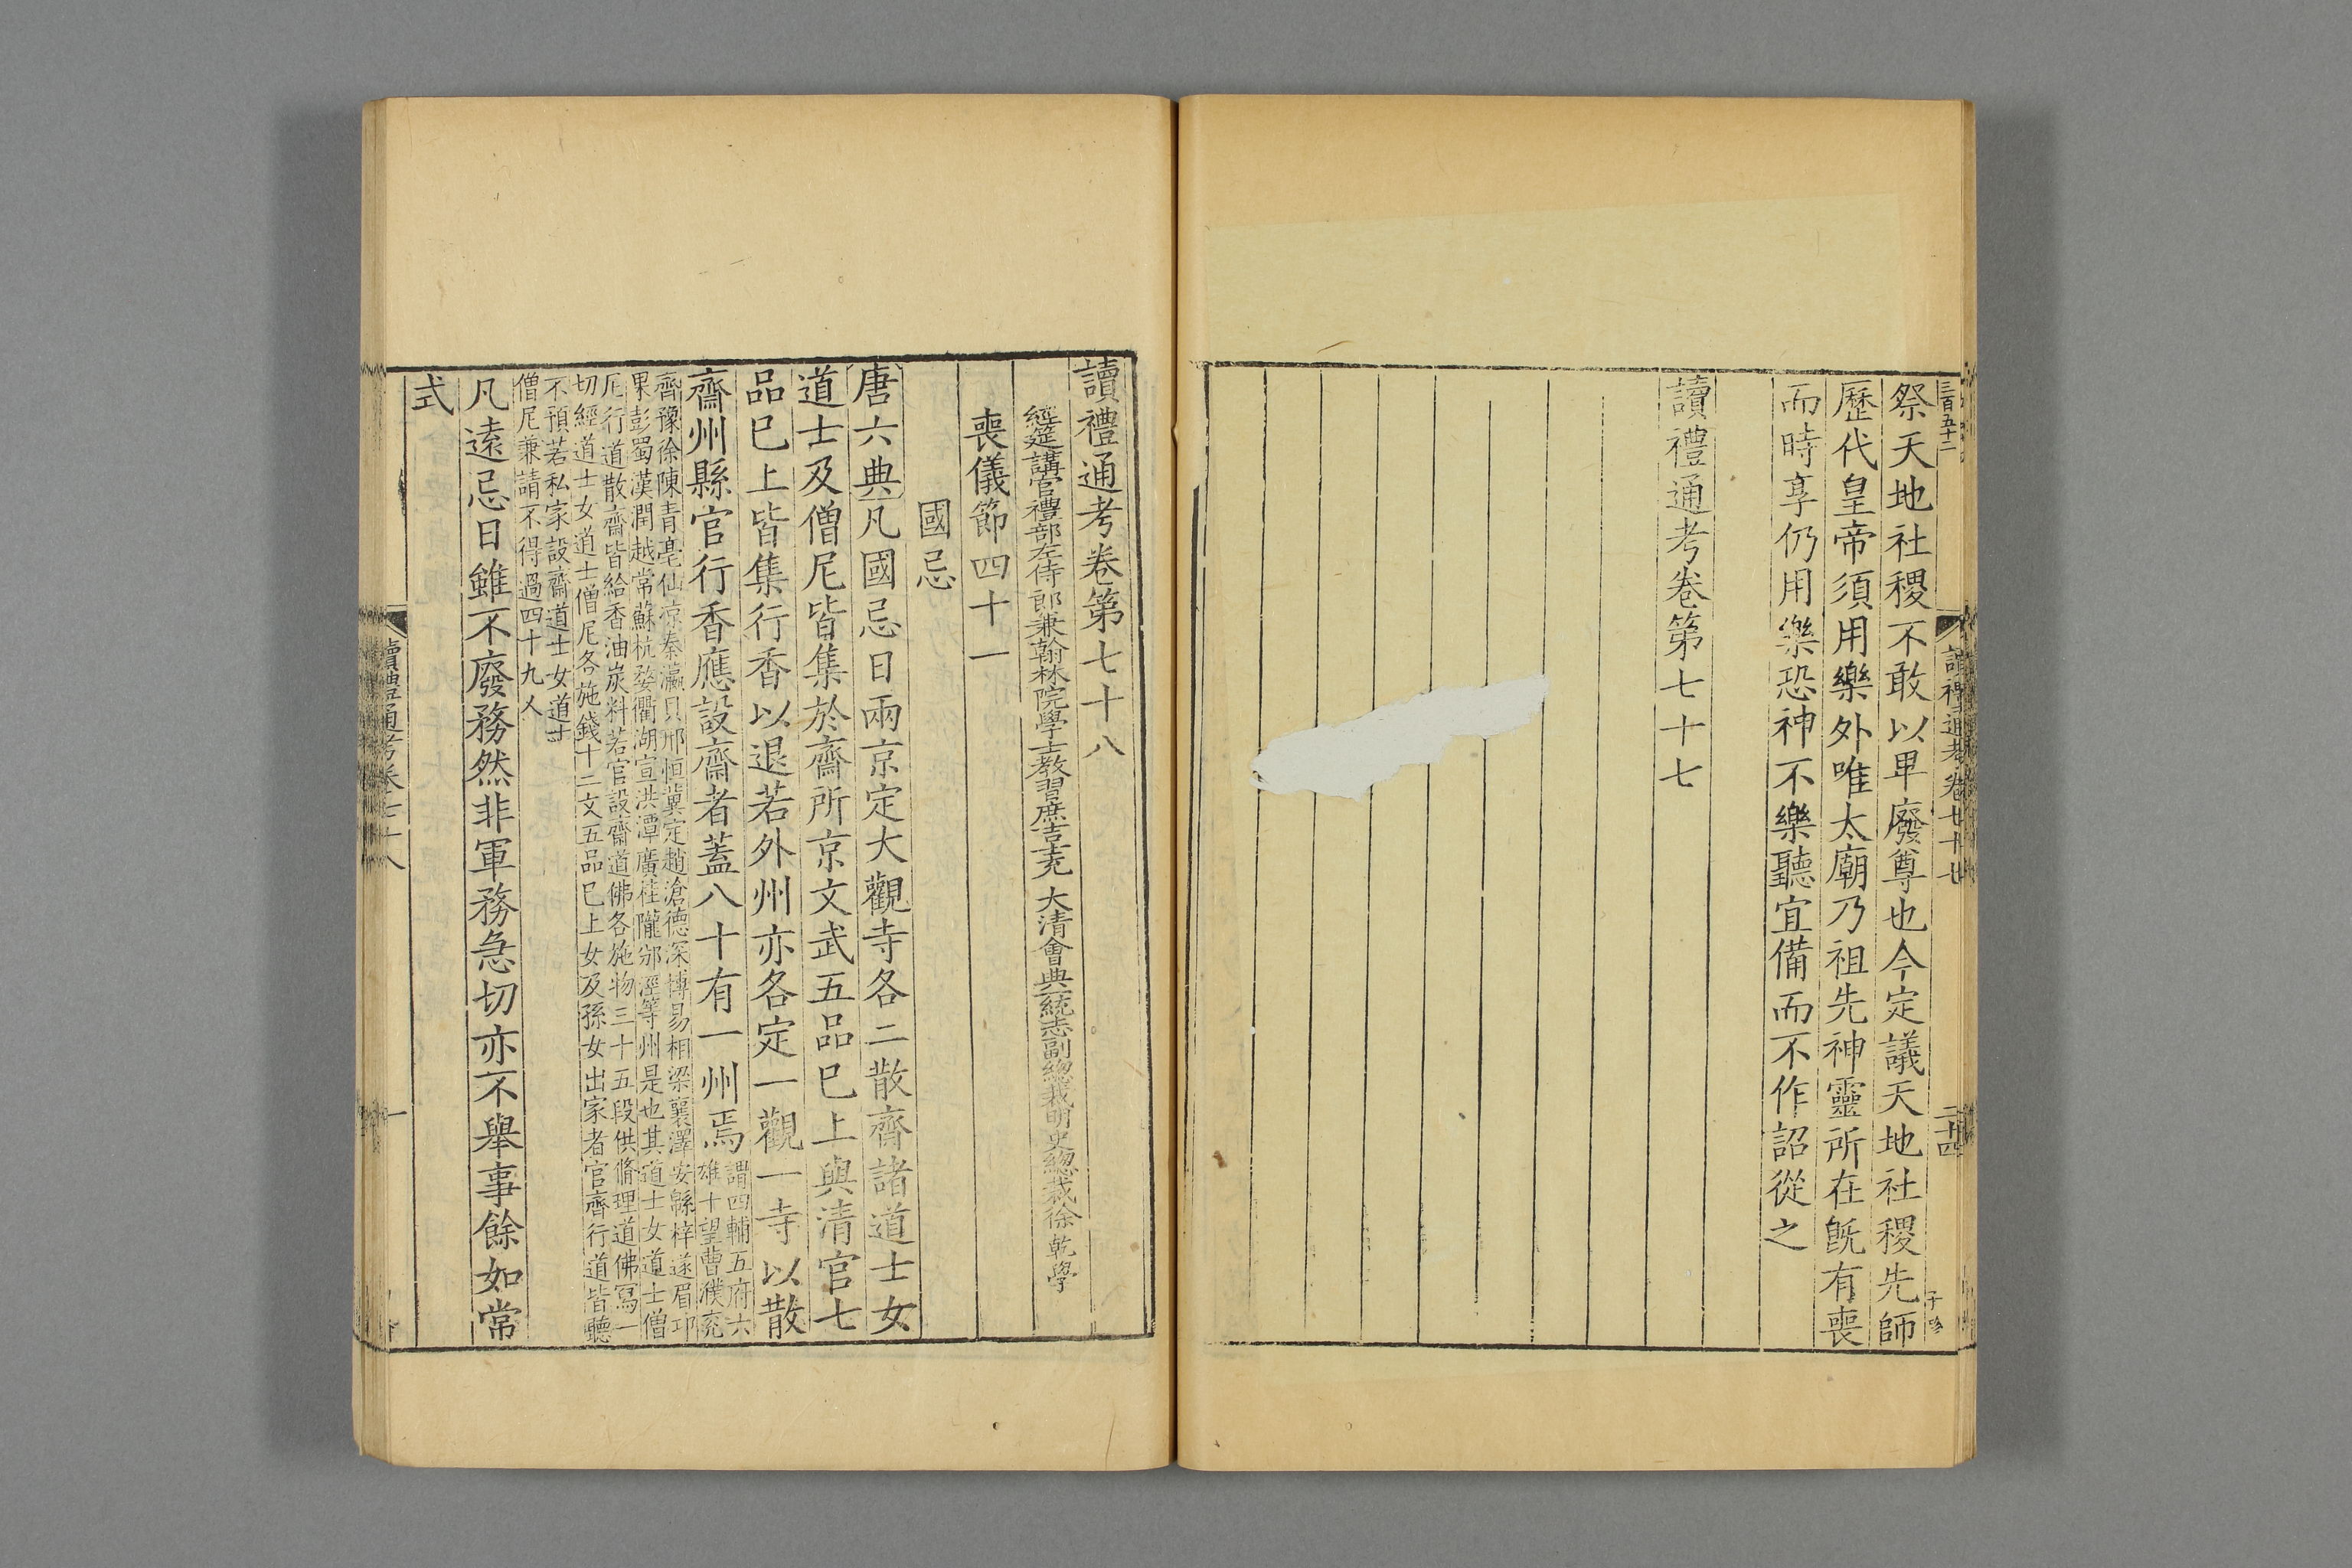 三百五十二
讀禮通考卷七十七
二十四
祭天地社稷不敢以𤰞廢尊也今定議天地社稷先師
歷代皇帝須用樂外唯太廟乃祖先神靈所在旣有喪
而時享仍用樂恐神不樂聽宜備而不作詔從之
讀禮通考卷第七十七
讀禮通考卷第七十八
經筵講官禮部左侍郎兼翰林院學士教習庶吉士充 大清會典一統志副總裁明史總裁徐乾學
喪儀節四十一
國忌
唐六典凡國忌日兩京定大觀寺各二散齊諸道士女
道士及僧尼皆集於齋所京文武五品已上與清官七
品已上皆集行香以退若外州亦各定一觀一寺以散
齋州縣官行香應設齋者蓋八十有一州焉
謂四輔五府六
雄十望曹濮兗
齊豫徐陳青亳仙涼秦瀛貝邢恒冀定趙滄德深博易相梁襄澤安緜梓遂眉邛
果彭蜀漢潤越常蘇杭婺衢湖宣洪潭廣桂隴邠涇等州是也其道士女道士僧
尼行道散齋皆給香油炭料若官設齋道佛各施物三十五段供脩理道佛寫一
切經道士女道士僧尼各施錢十二文五品已上女及孫女出家者官齊行道皆聽
不預若私家設齋道士女道士
僧尼兼請不得過四十九人
凡遠忌日雖不廢務然非軍務急切亦不舉事餘如常
式
讀禮通考卷七十八
一